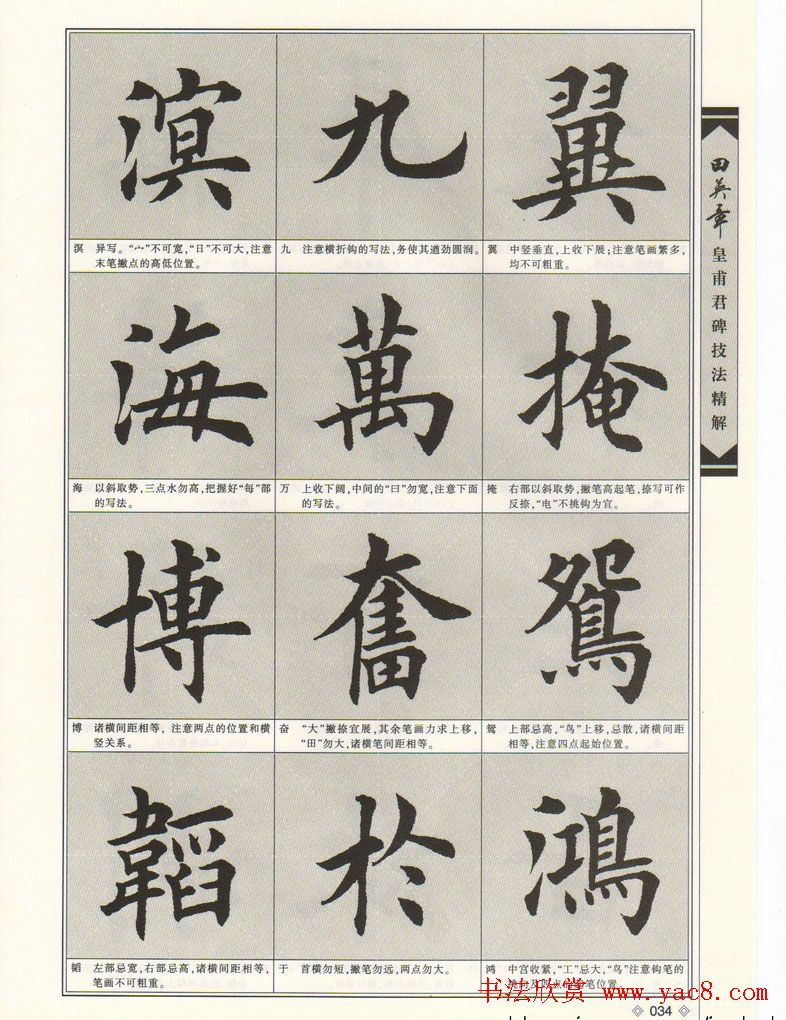 翼 九 溟
溟 异写。“宀”不可宽，“日”不可大，注意
末笔撇点的高低位置。
九 注意横折钩的写法，务使其遒劲圆润。
翼 中竖垂直，上收下展；注意笔画繁多，
均不可粗重。
掩 萬 海
海 以斜取势，三点水勿高，把握好“每”部
的写法。
万 上收下阔，中间的“曰”勿宽，注意下面
的写法。
掩 右部以斜取势，撇笔高起笔，捺写可作
反捺，“电”不挑钩为宜。
鴛 奮 博
博 诸横间距相等，注意两点的位置和横
竖关系。
奋 “大”撇捺宜展，其余笔画力求上移，
“田”勿大，诸横笔间距相等。
鸳 上部忌高，“鸟”上移，忌散，诸横间距
相等，注意四点起始位置。
鴻 於 韜
韬 左部忌宽，右部忌高，诸横间距相等，
笔画不可粗重。
于 首横勿短，撇笔勿远，两点勿大。
鸿 中宫收紧，“工”忌大，“鸟”注意钩笔的
及四点的笔位置。
田英章
皇甫君碑技法精解
书法欣赏 www.yac8.com
034